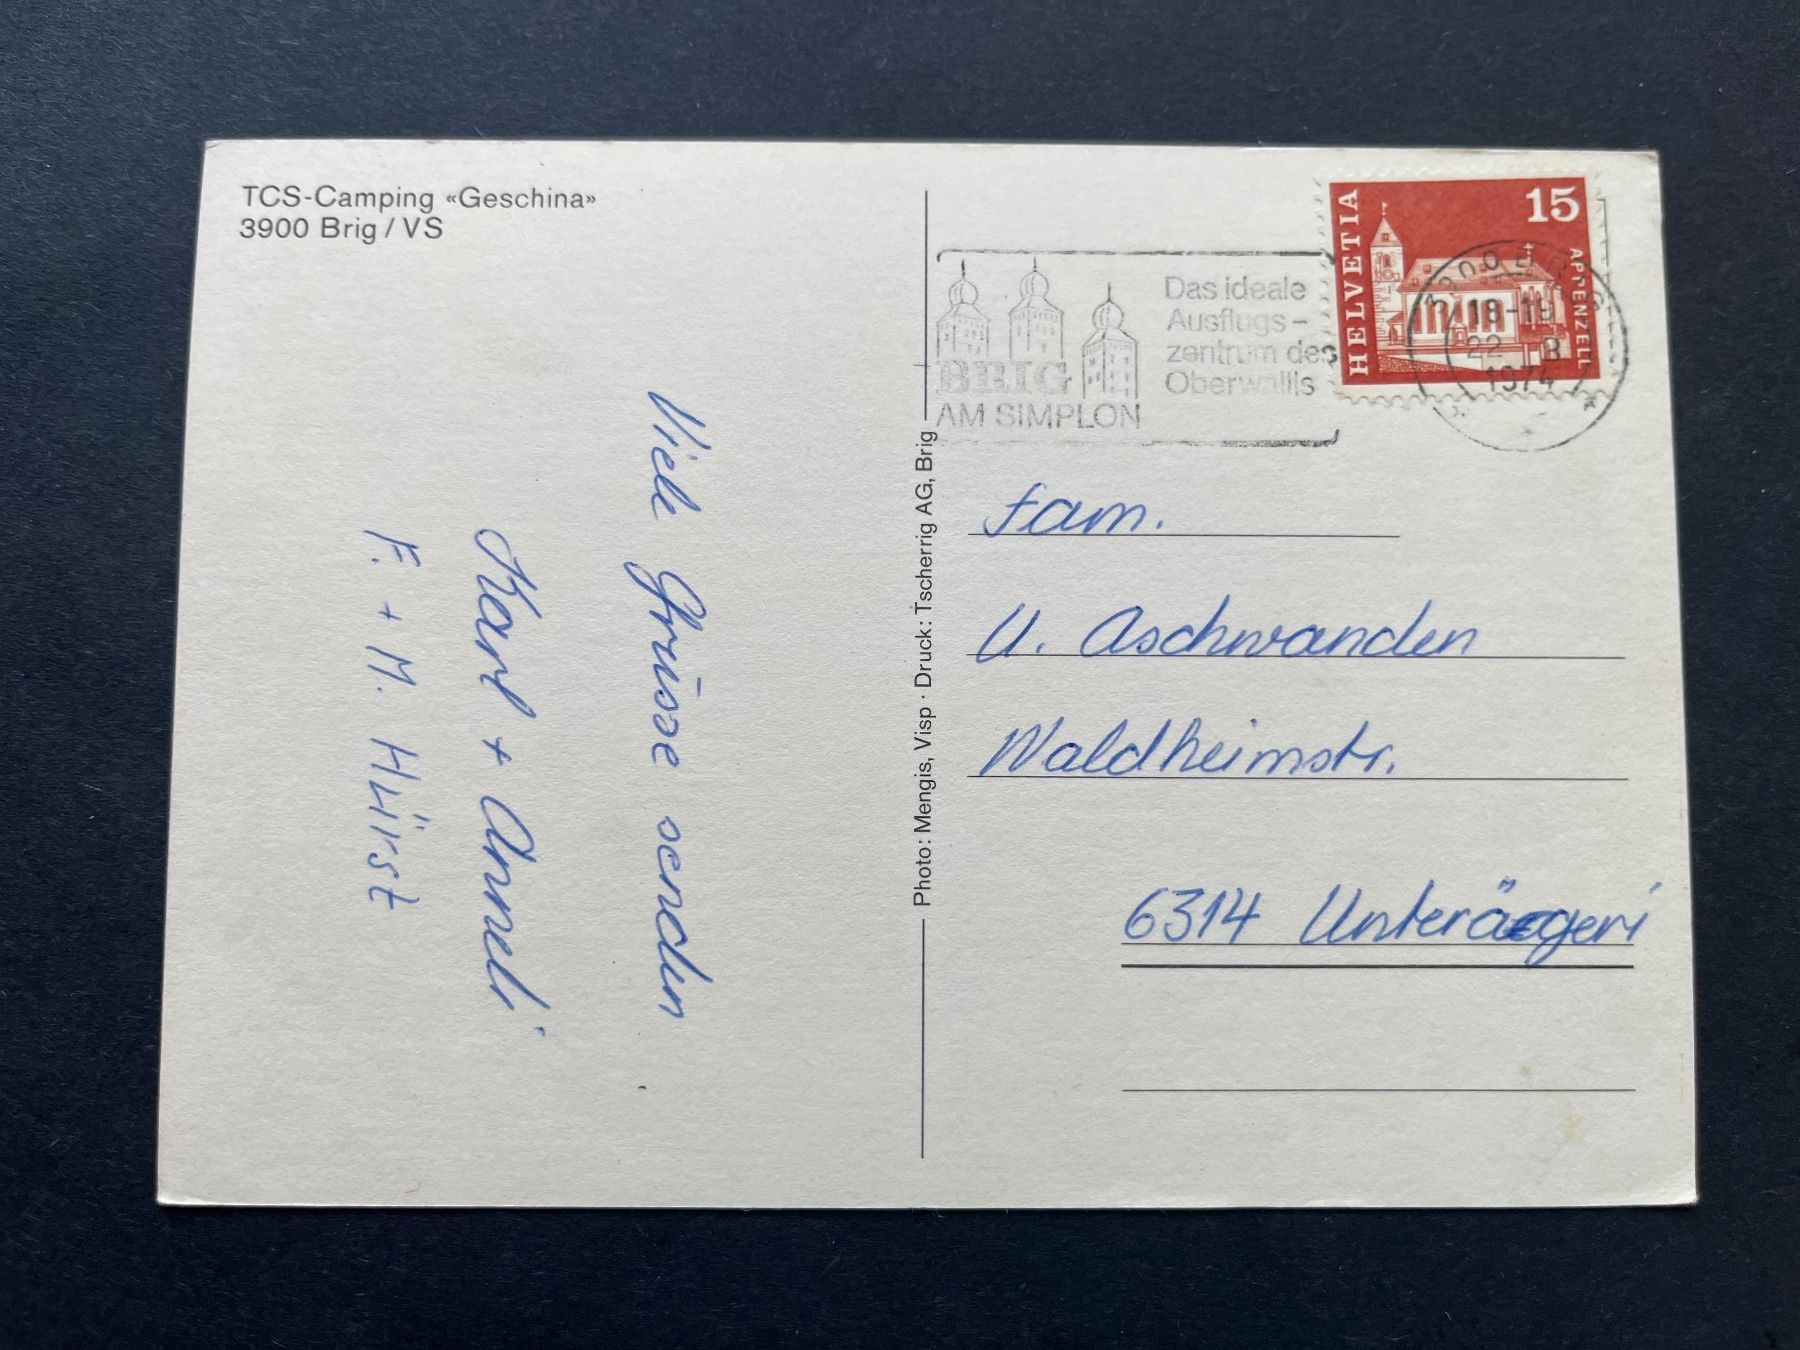 TCS-Camping «Geschina»
3900 Brig / VS
Viele Grüsse senden
Karl + Anneli
F. + M. Hürst
Photo: Mengis, Visp · Druck: Tscherrig AG, Brig
BRIG
AM SIMPLON
Das ideale
Ausflugs-
zentrum des
Oberwallis
HELVETIA
15
APPENZELL
3900 BRIG
18-19
22
1974
Fam.
U. Aschwanden
Waldheimstr.
6314 Unterägeri